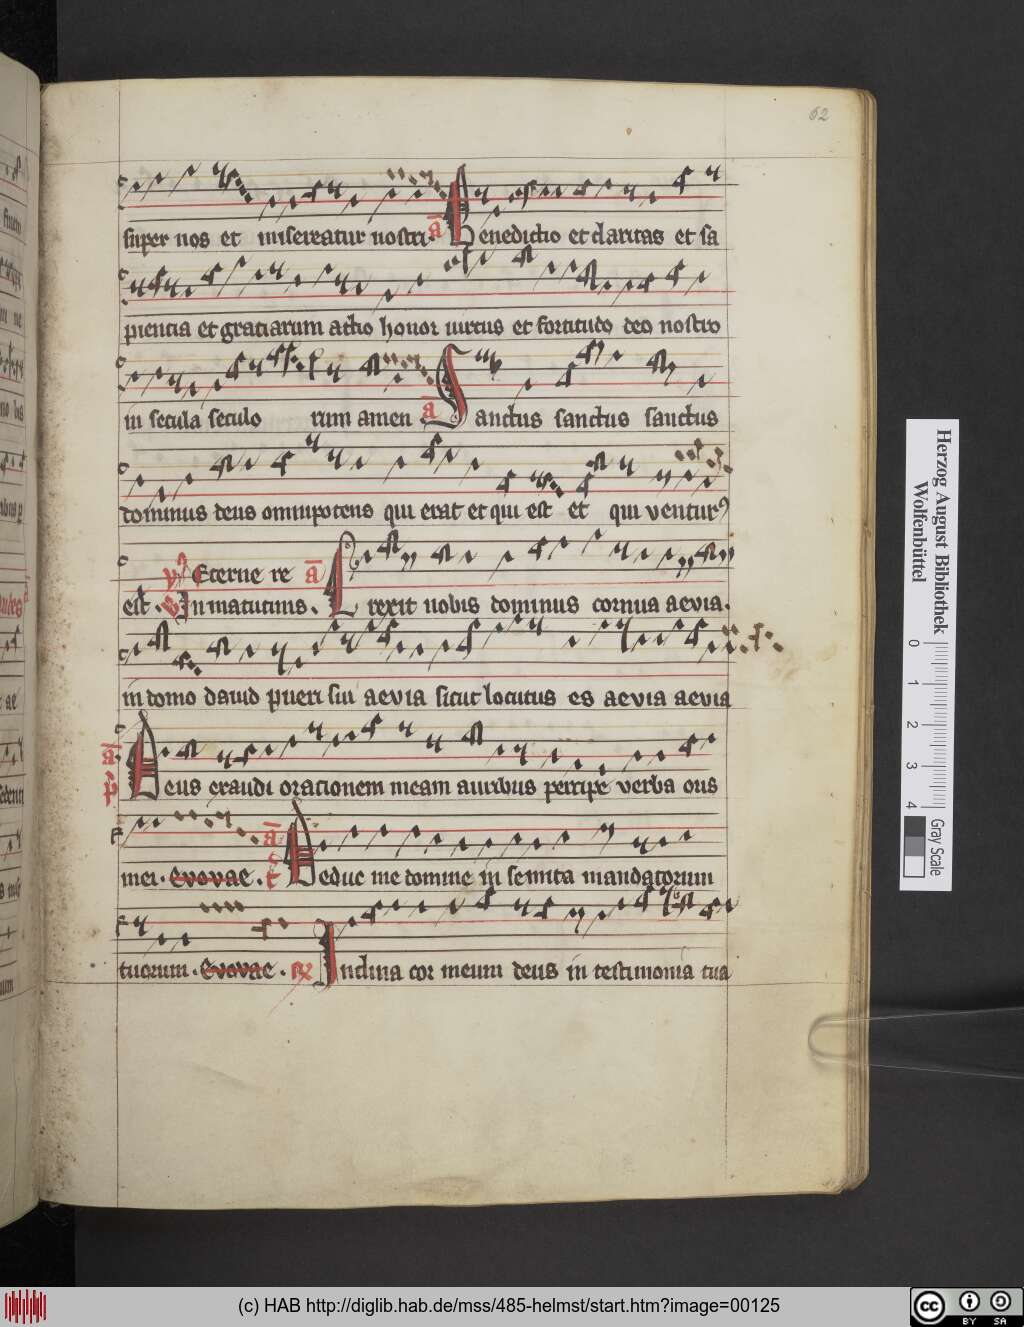 62
super nos et misereatur nostri. a Benedictio et claritas et sa
pientia et gratiarum actio honor uirtus et fortitudo deo nostro
in secula seculo rum amen a Sanctus sanctus sanctus
dominus deus omnipotens qui erat et qui est et qui ventur9
Eterne re a
est. In matutinis. Erexit nobis dominus cornua aevia.
in domo dauid pueri sui aevia sicut locutus es aevia aevia
a
p Deus exaudi orationem meam auribus percipe verba oris
a
mei. Evovae. f Deduc me domine in semita mandatorum
tuorum. Evovae. Inclina cor meum deus in testimonia tua
Herzog August Bibliothek
Wolfenbüttel
0 1 2 3 4
Gray Scale
(c) HAB http://diglib.hab.de/mss/485-helmst/start.htm?image=00125
cc BY SA